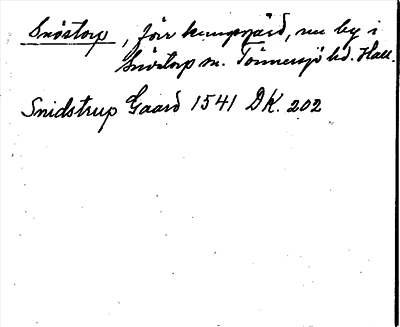 Snöstorp, förr kungsgård, nu by i
Snöstorp sn. Tönnersjö hd. Hall.
Snidstrup Gaard 1541 DK. 202